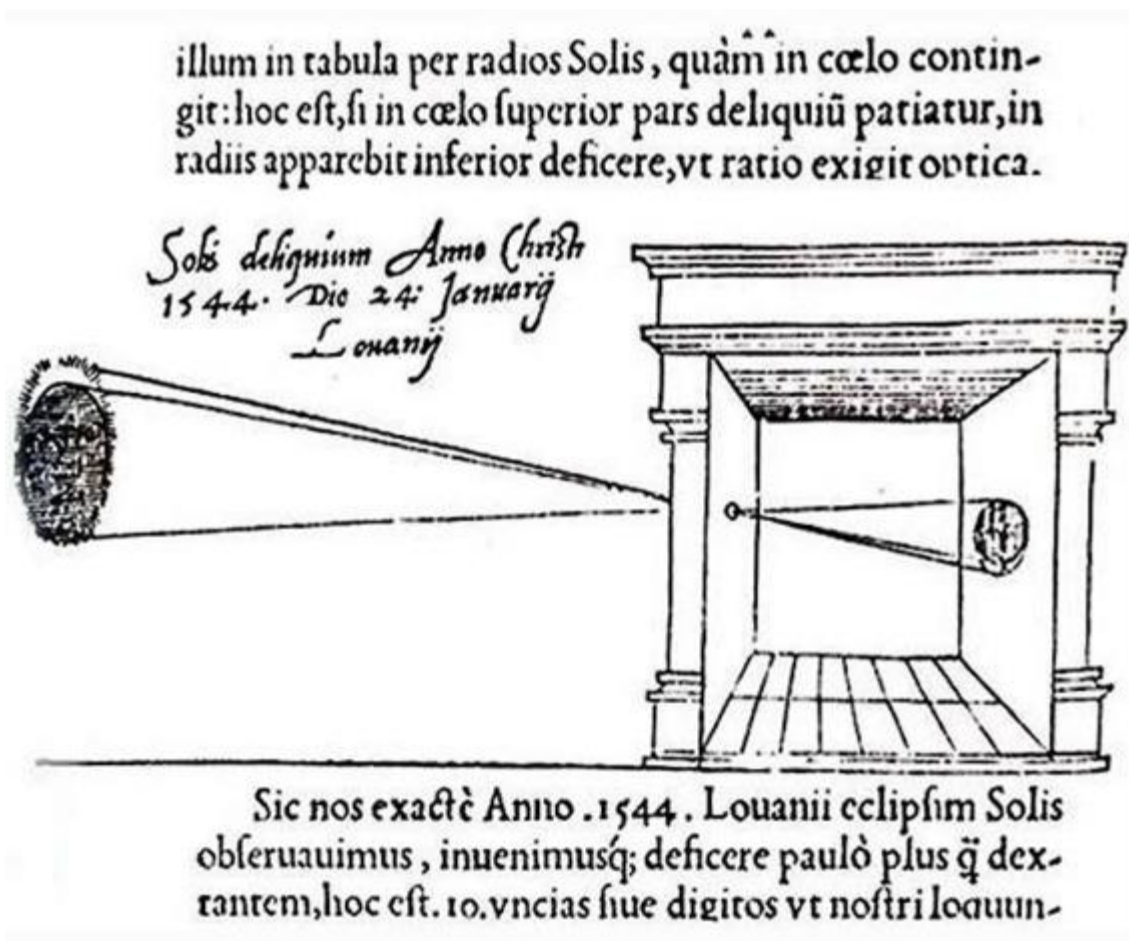 illum in tabula per radios Solis, quàm in cœlo contin-
git: hoc eſt, ſi in cœlo ſuperior pars deliquiũ patiatur, in
radiis apparebit inferior deficere, vt ratio exigit optica.
Solis deliquium Anno Christi
1544. Die 24: Januarij
Louanij
Sic nos exactè Anno .1544. Louanii eclipſim Solis
obſeruauimus, inuenimusq́; deficere paulò plus q̃ dex-
tantem, hoc eſt. 10. vncias ſiue digitos vt noſtri loquun-